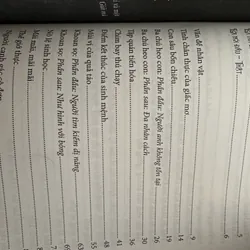 5
6
Vấn đề nhân vật 9
Tính chân thực của giấc mơ 14
Con sâu bốn chiều 19
Ba chú heo con: Phần đầu: Người anh không tồn tại 26
Ba chú heo con: Phần sau: Đa nhân cách 30
Tập quán tiến hóa 36
Chim bay thú chạy 41
Điểm kết thúc của sinh mệnh 48
Mùi vị của quả táo 55
Khoan sọ: Phần đầu: Người tìm kiếm dị năng
Khoan sọ: Phần sau: Như hình với bóng
Nô lệ sinh học
Mãi mãi, mãi mãi
Thế giới thực